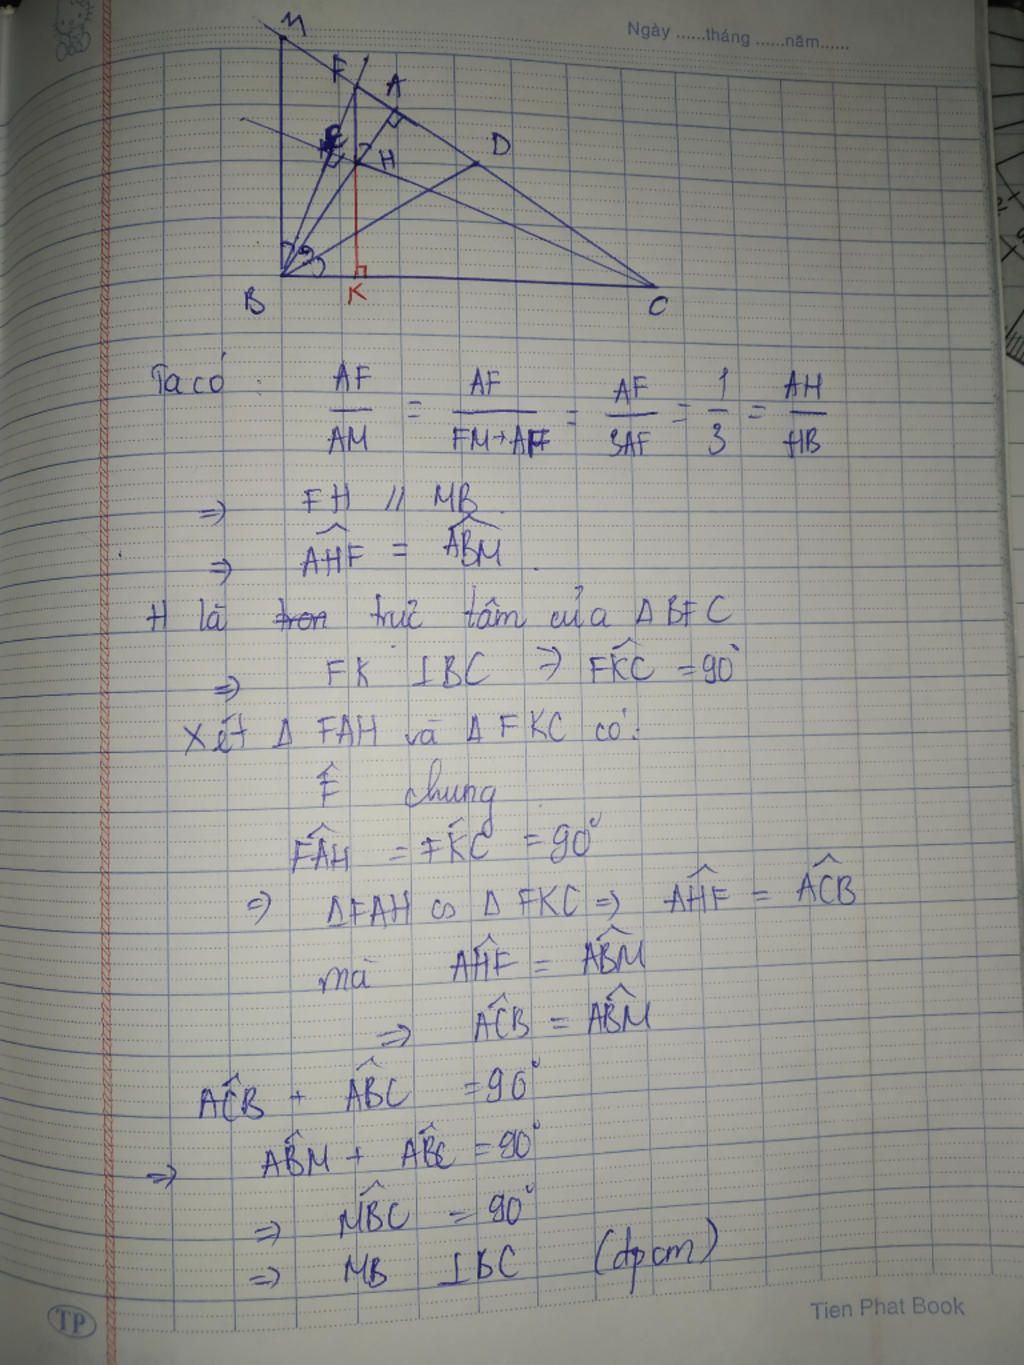 Ngày ......tháng ......năm......
M
F A
D
H
B K C
Ta có : AF/AM = AF/FM+AF = AF/3AF = 1/3 = AH/HB
⇒ FH // MB
⇒ AHF = ABM
H là trực tâm của Δ BFC
⇒ FK ⊥ BC ⇒ FKC = 90°
Xét Δ FAH và Δ FKC có:
F chung
FAH = FKC = 90°
⇒ ΔFAH ∽ Δ FKC ⇒ AHF = ACB
mà AHF = ABM
⇒ ACB = ABM
ACB + ABC = 90°
⇒ ABM + ABC = 90°
⇒ MBC = 90°
⇒ MB ⊥ BC (đpcm)
TP Tien Phat Book